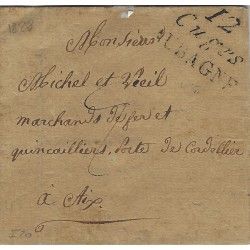 1823
12
Cuges
AUBAGNE
Monsieur
Michel et Veil
marchands de fer et
quincailliers, Porte de Cordellier
à Aix